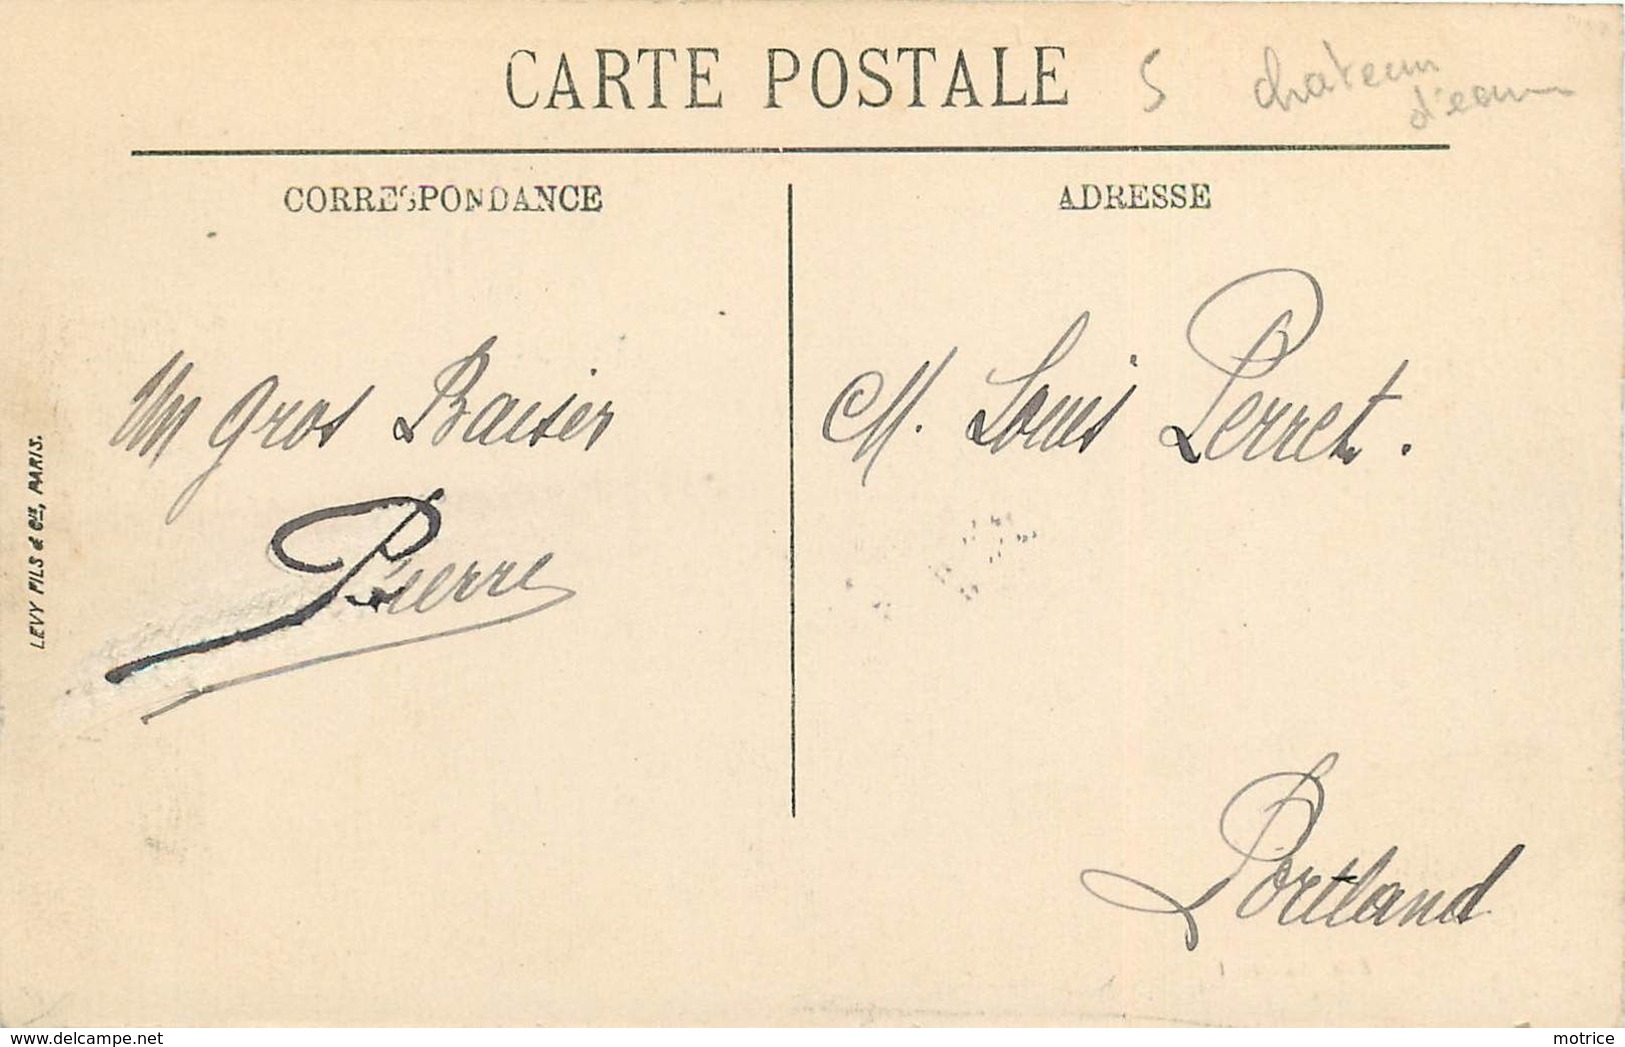 CARTE POSTALE
5 chateau
d'eau
CORRESPONDANCE
ADRESSE
Un gros Baiser
Pierre
M. Louis Perret.
Portland
LEVY FILS & Cie, PARIS.
delcampe.net
motrice